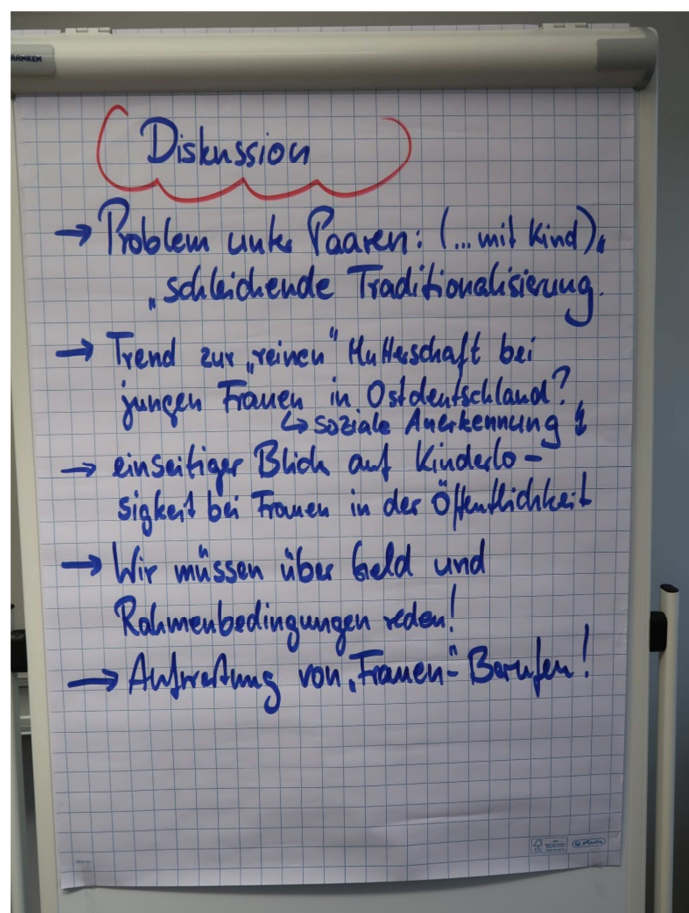 RANKEN
Diskussion
→ Problem unter Paaren: (... mit Kind),
„schleichende Traditionalisierung.
→ Trend zur „reinen" Mutterschaft bei
jungen Frauen in Ostdeutschland?
↳ soziale Anerkennung
→ einseitiger Blick auf Kinderlo-
sigkeit bei Frauen in der Öffentlichkeit
→ Wir müssen über Geld und
Rahmenbedingungen reden!
→ Aufwertung von „Frauen-" Berufen!